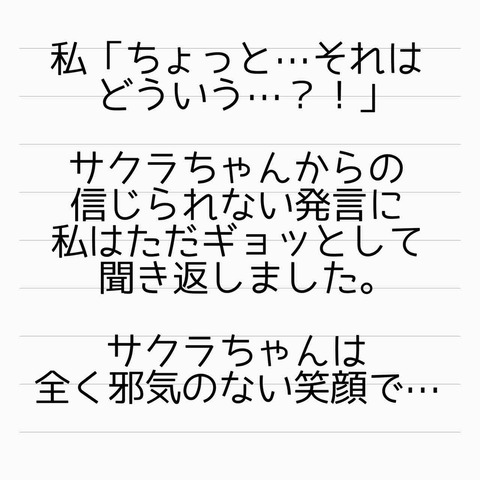 私「ちょっと…それは
どういう…？！」
サクラちゃんからの
信じられない発言に
私はただギョッとして
聞き返しました。
サクラちゃんは
全く邪気のない笑顔で…